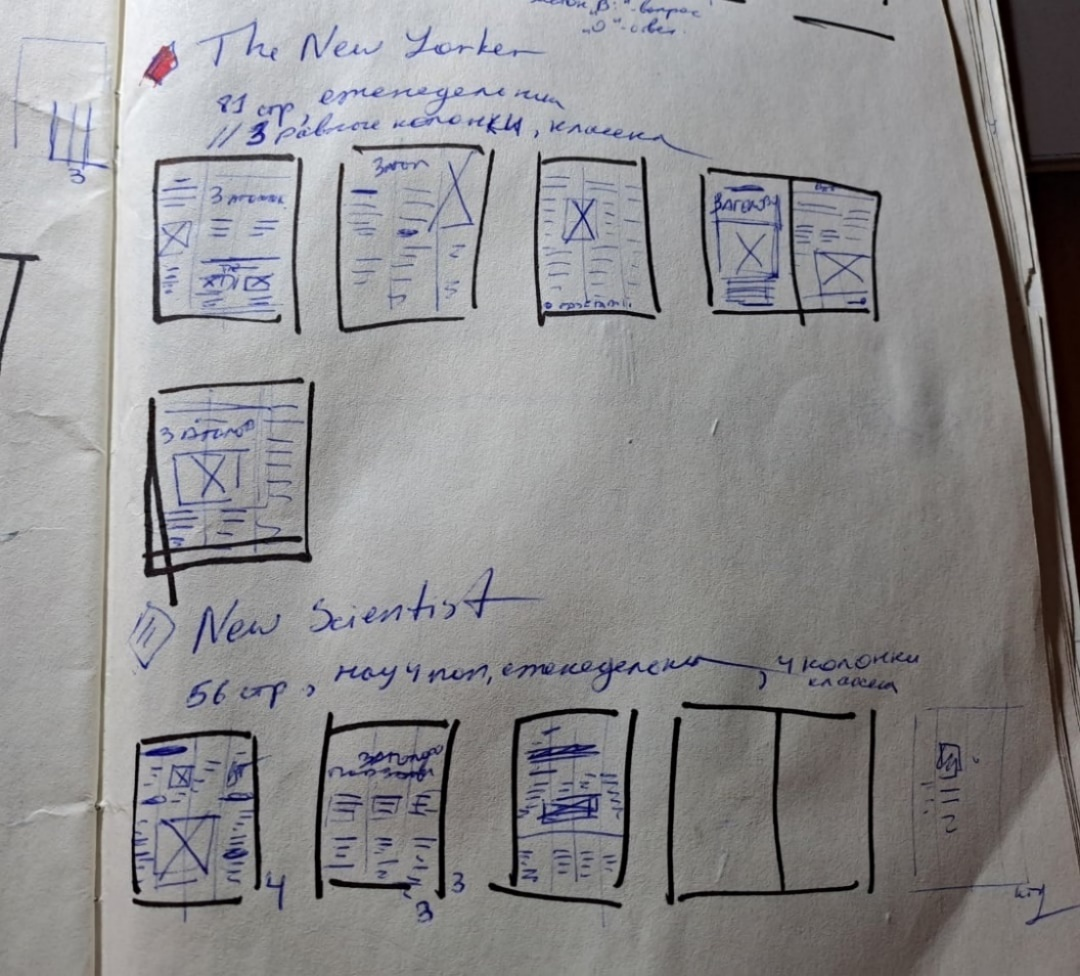 "В:" - вопрос
"О" - ответ
3
The New Yorker
81 стр, еженедельник
// 3 равные колонки, классика
Заголовок
Загол
Заголовок
Заголовок
New Scientist
56 стр, науч поп, еженедельник, 4 колонки
классика
Заголовок
4
3
3